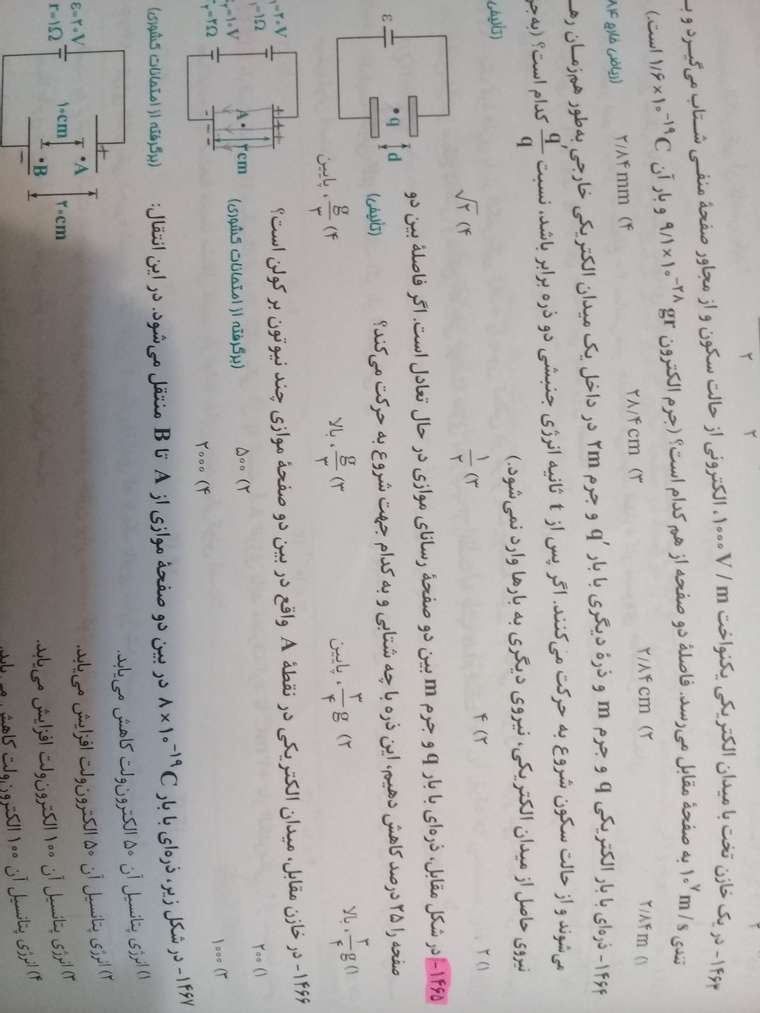 ۱۴۶۳- در یک خازن تخت با میدان الکتریکی یکنواخت ۱۰۰۰ V/m، الکترونی از حالت سکون و از مجاور صفحهٔ منفی شتاب می‌گیرد و با
تندی ۱۰^۷ m/s به صفحهٔ مقابل می‌رسد. فاصلهٔ دو صفحه از هم کدام است؟ (جرم الکترون ۹/۱×۱۰^-۲۸ gr و بار آن ۱/۶×۱۰^-۱۹ C است.)
(ریاضی خارج ۸۴
۱) ۲/۸۴ m
۲) ۲/۸۴ cm
۳) ۲۸/۴ cm
۴) ۲/۸۴ mm
۱۴۶۴- ذره‌ای با بار الکتریکی q و جرم m و ذرهٔ دیگری با بار q′ و جرم ۲m در داخل یک میدان الکتریکی خارجی به‌طور هم‌زمان
می‌شوند و از حالت سکون شروع به حرکت می‌کنند. اگر پس از t ثانیه انرژی جنبشی دو ذره برابر باشد، نسبت q′/q کدام است؟
نیروی حاصل از میدان الکتریکی، نیروی دیگری به بارها وارد نمی‌شود.)
(تألیفی)
۱) ۲
۲) ۴
۳) ۱/۲
۴) √۲
۱۴۶۵- در شکل مقابل، ذره‌ای با بار q و جرم m بین دو صفحهٔ رسانای موازی در حال تعادل است. اگر فاصلهٔ بین دو
صفحه را ۲۵ درصد کاهش دهیم، این ذره با چه شتابی و به کدام جهت شروع به حرکت می‌کند؟
(تألیفی)
۱) ۳/۴ g، بالا
۲) ۳/۴ g، پایین
۳) g/۳، بالا
۴) g/۳، پایین
ε
q
d
۱۴۶۶- در خازن مقابل، میدان الکتریکی در نقطهٔ A واقع در بین دو صفحهٔ موازی چند نیوتون بر کولن است؟
(برگرفته از امتحانات کشوری)
۱) ۲۰۰
۲) ۵۰۰
۳) ۱۰۰۰
۴) ۲۰۰۰
=۲۰V
=۱Ω
=۱۰V
=۲Ω
A
۲cm
۱۴۶۷- در شکل زیر، ذره‌ای با بار ۸×۱۰^-۱۹ C در بین دو صفحهٔ موازی از A تا B منتقل می‌شود. در این انتقال:
(برگرفته از امتحانات کشوری)
۱) انرژی پتانسیل آن ۵۰ الکترون‌ولت کاهش می‌یابد.
۲) انرژی پتانسیل آن ۵۰ الکترون‌ولت افزایش می‌یابد.
۳) انرژی پتانسیل آن ۱۰۰ الکترون‌ولت افزایش می‌یابد.
۴) انرژی پتانسیل آن ۱۰۰ الکترون‌ولت کاهش می‌یابد.
ε=۲۰V
r=۱Ω
۱۰cm
A
B
۲۰cm